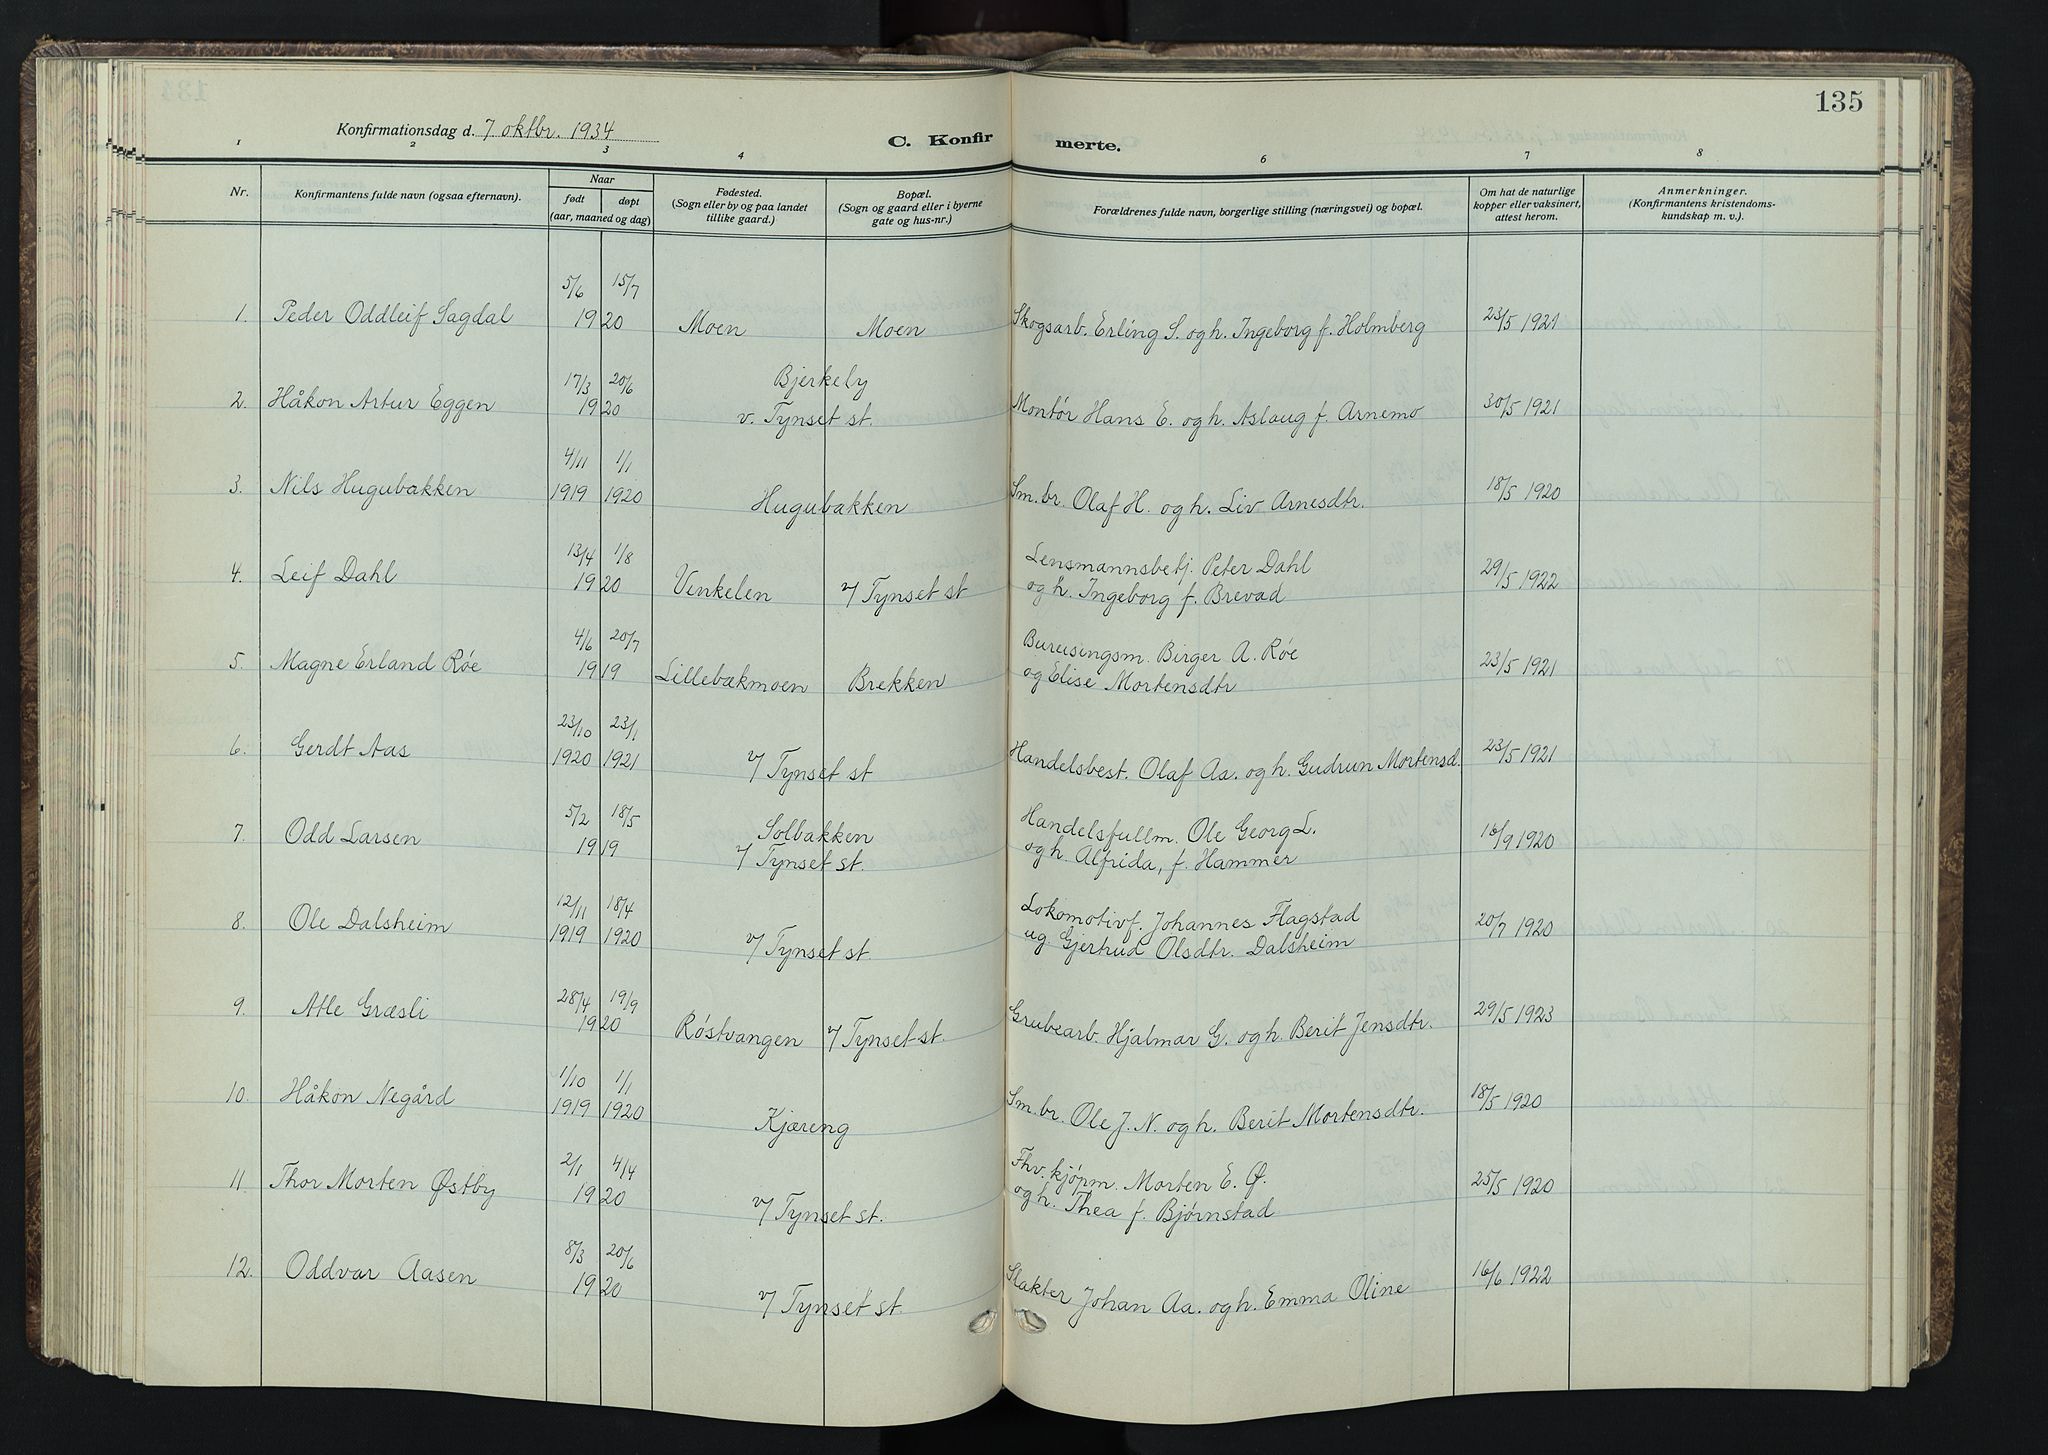 135
Konfirmationsdag d. 7. oktbr. 1934
C. Konfirmerte.
1 2 3 4 6 7 8
Nr.
Konfirmantens fulde navn (ogsaa efternavn).
Naar
født døpt
(aar, maaned og dag)
Fødested.
(Sogn eller by og paa landet
tillike gaard.)
Bopæl.
(Sogn og gaard eller i byerne
gate og hus-nr.)
Forældrenes fulde navn, borgerlige stilling (næringsvei) og bopæl.
Om hat de naturlige
kopper eller vaksinert,
attest herom.
Anmerkninger.
(Konfirmantens kristendoms-
kundskap m. v.).
5/6 15/7
1. Peder Oddleif Sagdal 1920 Moen Moen Skogsarb. Erling S. og h. Ingeborg f. Holmberg 23/5 1921
17/3 20/6 Bjerkely
2. Håkon Artur Eggen 1920 v. Tynset st. Montør Hans E. og h. Aslaug f. Arnemo 30/5 1921
4/11 1/1
3. Nils Hugubakken 1919 1920 Hugubakken Sm.br. Olaf H. og h. Liv Arnesdtr. 18/5 1920
13/4 1/8 Lensmannsbetj. Peter Dahl
4. Leif Dahl 1920 Venkelen v/ Tynset st og h. Ingeborg f. Brevad 29/5 1922
4/6 20/7 Bureisingsm. Birger A. Røe
5. Magne Erland Røe 1919 Lillebækmoen Brekken og Elise Mortensdtr 23/5 1921
23/10 23/1
6. Gerdt Aas 1920 1921 v/ Tynset st Handelsbest. Olaf Aa. og h. Gudrun Mortensd. 23/5 1921
5/2 18/5 Solbakken Handelsfullm. Ole Georg L.
7. Odd Larsen 1919 v/ Tynset st. og h. Alfrida, f. Hammer 16/9 1920
12/11 18/4 Lokomotivf. Johannes Flagstad
8. Ole Dalsheim 1919 1920 v/ Tynset st. ug. Gjertrud Olsdtr. Dalsheim 20/7 1920
28/4 19/9
9. Atle Græsli 1920 Røstvangen v/ Tynset st. Grubearb. Hjalmar G. og h. Berit Jensdtr. 29/5 1923
1/10 1/1
10. Håkon Negård 1919 1920 Kjæreng Sm.br. Ole J. N. og h. Berit Mortensdtr. 18/5 1920
2/1 4/4 Fhv. kjøpm. Morten E. Ø.
11. Thor Morten Østby 1920 v/ Tynset st. og h. Thea f. Bjørnstad 25/5 1920
8/3 20/6
12. Oddvar Aasen 1920 v/ Tynset st. Slakter Johan Aa. og h. Emma Oline 16/6 1922